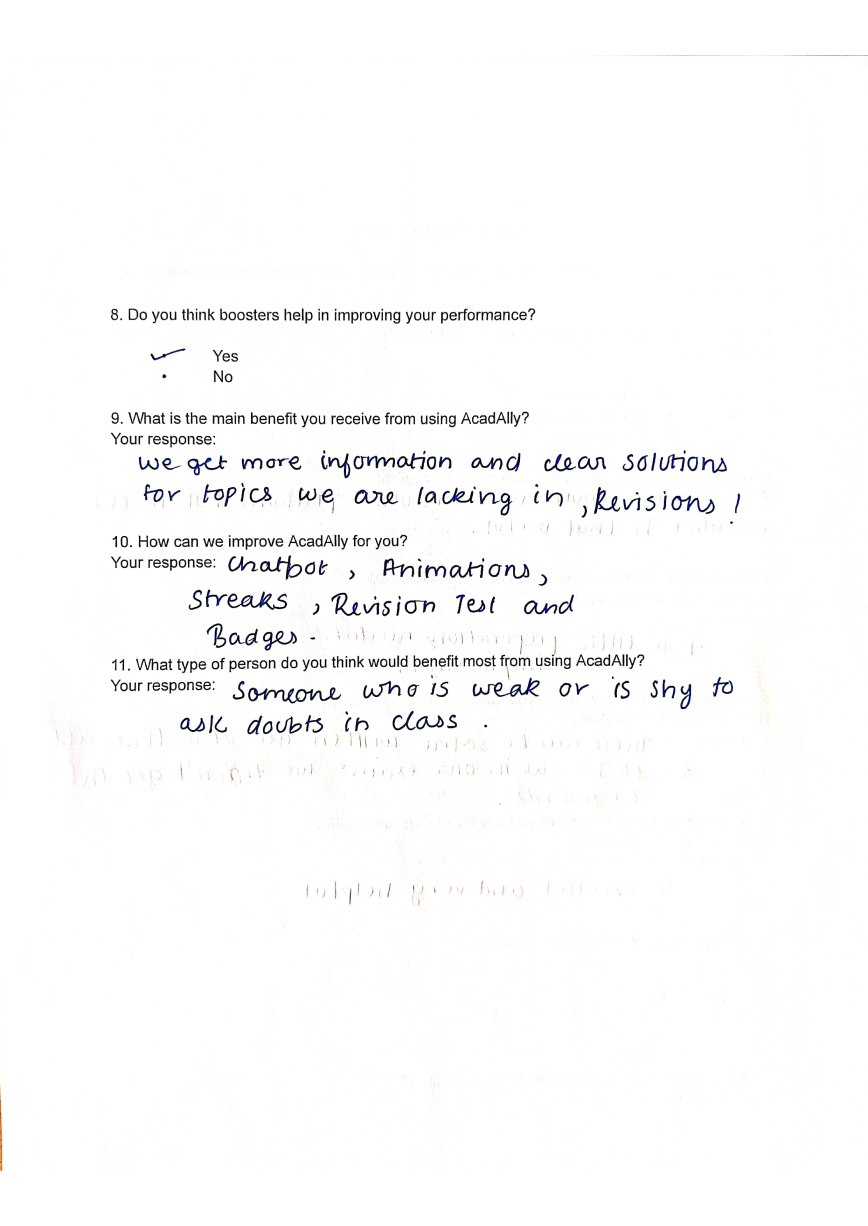 8. Do you think boosters help in improving your performance?
Yes
No
9. What is the main benefit you receive from using AcadAlly?
Your response:
we get more information and clear solutions
for topics we are lacking in , Revisions !
10. How can we improve AcadAlly for you?
Your response: Chatbot , Animations ,
Streaks , Revision Test and
Badges .
11. What type of person do you think would benefit most from using AcadAlly?
Your response: Someone who is weak or is shy to
ask doubts in class .